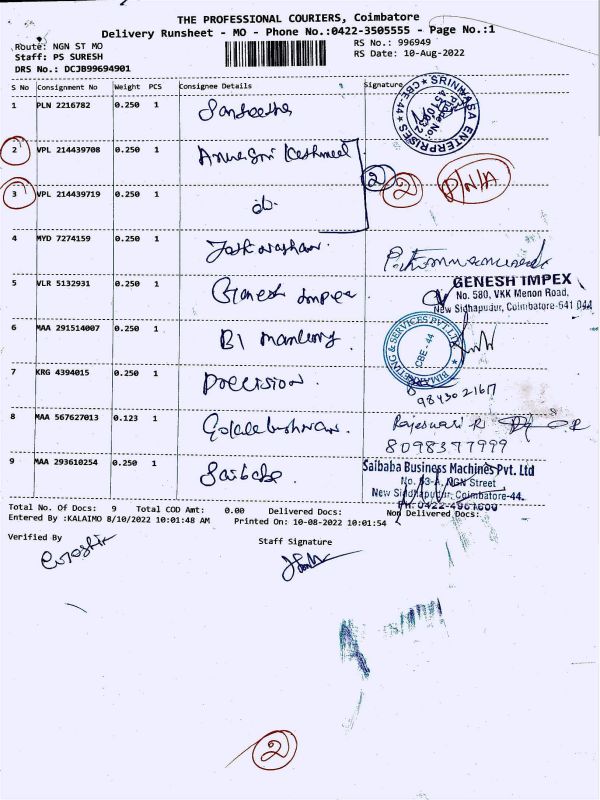 THE PROFESSIONAL COURIERS, Coimbatore
Delivery Runsheet - MO - Phone No.:0422-3505555 - Page No.:1
Route: NGN ST MO
RS No.: 996949
Staff: PS SURESH
RS Date: 10-Aug-2022
DRS No.: DCJB99694901
S No Consignment No Weight PCS Consignee Details Signature
1 PLN 2216782 0.250 1
SRINIVASA ENTERPRISES CBE-44
2 VPL 214439708 0.250 1
2 2 P/N/A
3 VPL 214439719 0.250 1 do.
4 MYD 7274159 0.250 1
5 VLR 5132931 0.250 1 Ganesh Impex
GENESH IMPEX
No. 580, VKK Menon Road,
New Sidhapudur, Coimbatore-641 044
6 MAA 291514007 0.250 1 BI
MARKETING & SERVICES PVT LTD CBE - 44
7 KRG 4394015 0.250 1 Precision.
9843021617
8 MAA 567627013 0.123 1 Rajeswari R
8098377999
9 MAA 293610254 0.250 1 Saibaba.
Saibaba Business Machines Pvt. Ltd
No. 63-A, NGN Street
New Siddhapudur, Coimbatore-44.
PH: 0422-4961600
Total No. Of Docs: 9 Total COD Amt: 0.00 Delivered Docs: Non Delivered Docs:
Entered By :KALAIMO 8/10/2022 10:01:48 AM Printed On: 10-08-2022 10:01:54
Verified By Staff Signature
2